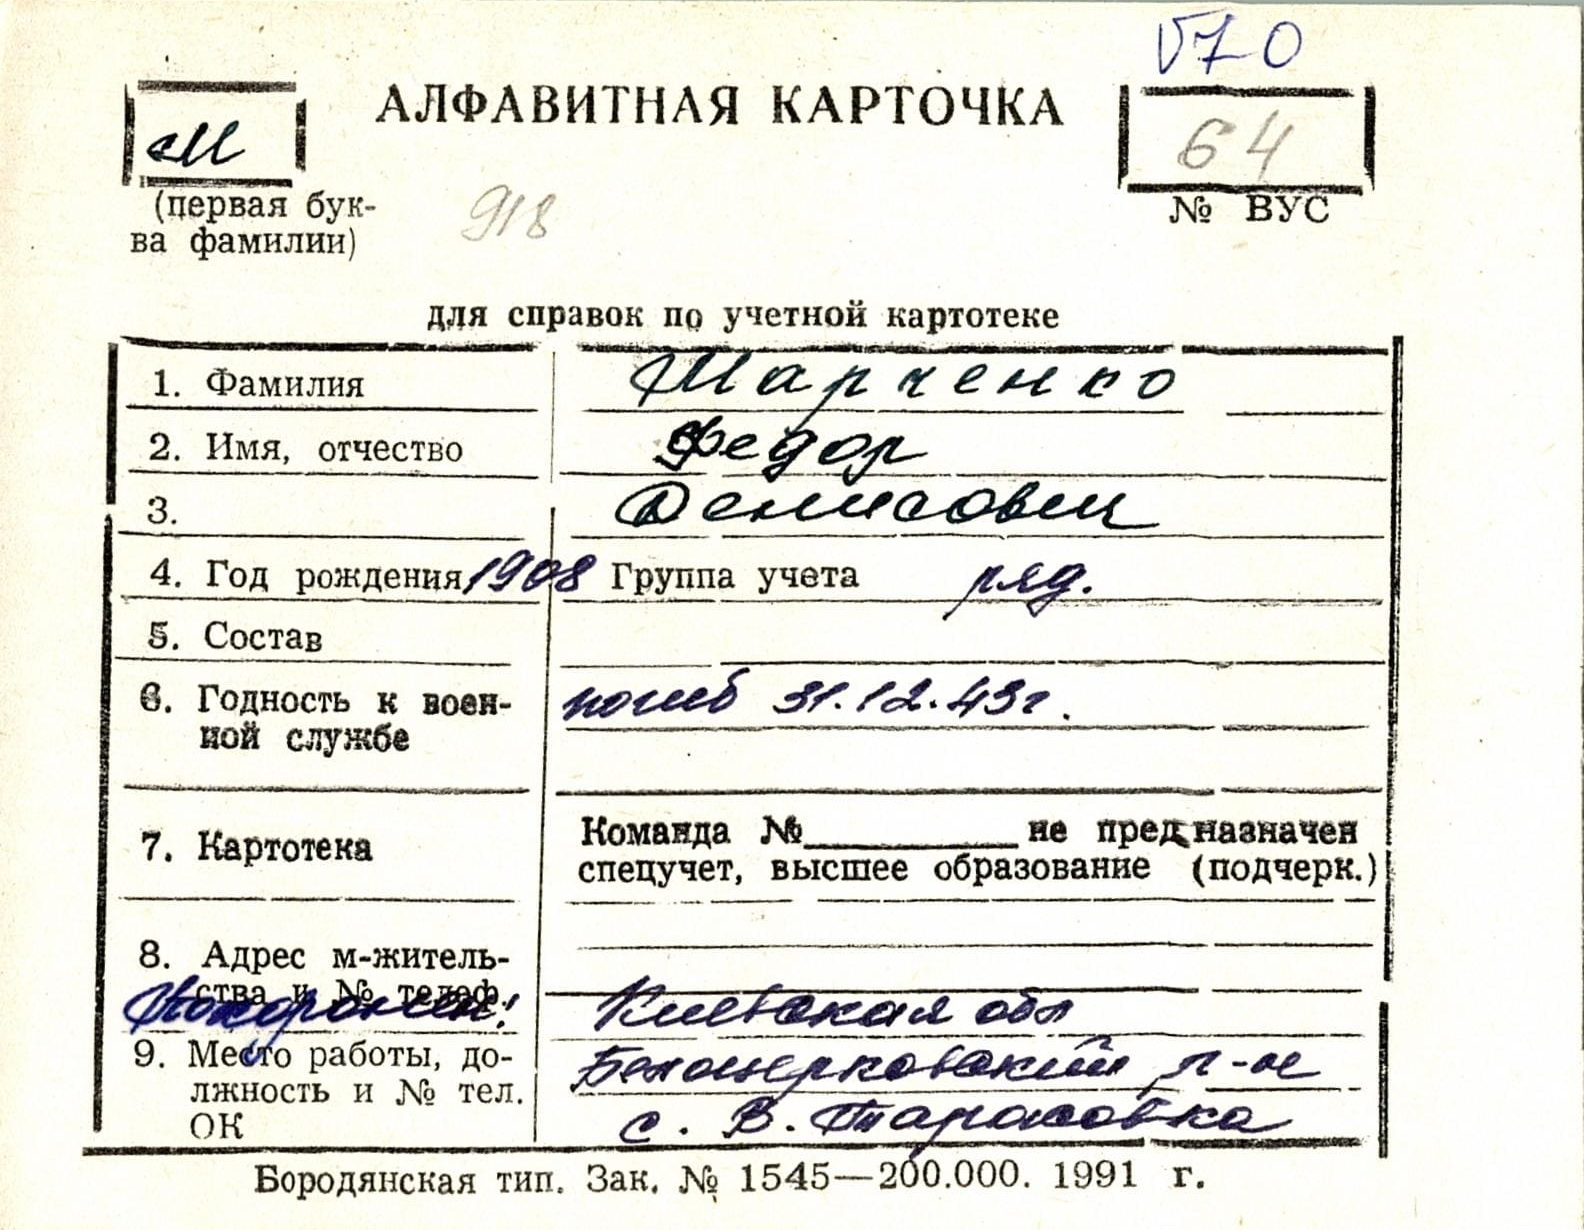 V70
М
АЛФАВИТНАЯ КАРТОЧКА
64
(первая бук-
ва фамилии)
918
№ ВУС
для справок по учетной картотеке
1. Фамилия Марченко
2. Имя, отчество Федор
3. Денисович
4. Год рождения 1908 Группа учета ряд.
5. Состав
6. Годность к воен-
ной службе погиб 31.12.43г.
7. Картотека Команда №_________ не предназначен
спецучет, высшее образование (подчерк.)
8. Адрес м-житель-
ства и № телеф.
Похоронен: Киевская обл
9. Место работы, до- Белоцерковский р-н
лжность и № тел.
ОК с. В. Тарасовка
Бородянская тип. Зак. № 1545—200.000. 1991 г.